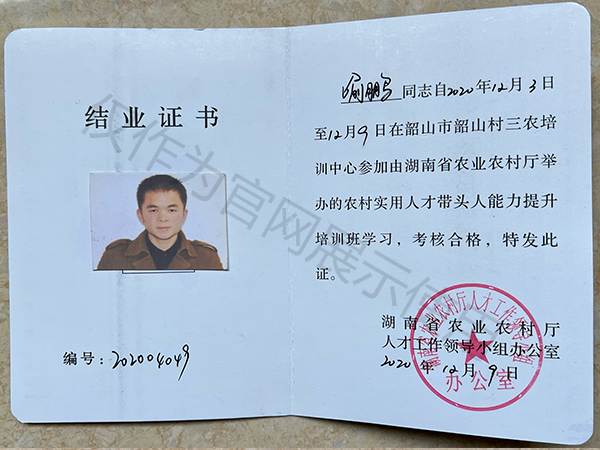 结业证书
编号：202004049
喻鹏 同志自2020年12月3日
至12月9日在韶山市韶山村三农培
训中心参加由湖南省农业农村厅举
办的农村实用人才带头人能力提升
培训班学习，考核合格，特发此
证。
湖南省农业农村厅
人才工作领导小组办公室
2020年12月9日
办公室
仅作为官网展示使用